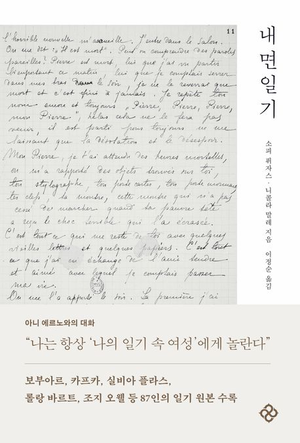 11
L'horrible nouvelle m'accueille. J'entre dans le salon.
On me dit : "Il est mort". Peut-on comprendre des paroles
pareilles? Pierre est mort, lui que j'ai vu partir
mort et c'est fini à jamais. Je répète ton
nom encore et toujours "Pierre, Pierre, Pierre,
mon Pierre", hélas cela ne le fera pas
venir, il est parti pour toujours ne me
laissant que la désolation et le désespoir.
Mon Pierre, je t'ai attendu des heures mortelles,
on m'a rapporté des objets trouvés sur toi,
ton stylographe, ton porte cartes, ton porte monnaie,
tes clefs, ta montre, cette montre qui n'a pas
a reçu le choc terrible qui l'a écrasée.
C'est tout ce qui me reste de toi avec quelques
vieilles lettres et quelques papiers. C'est tout
ce que j'ai en échange de l'ami tendre
et aimé avec lequel je comptais passer
ma vie.
On me l'a apporté le soir. La première j'ai
내면일기
소피 퓌자스·니콜라 말레 지음
이정순 옮김
아니 에르노와의 대화
“나는 항상 ‘나의 일기 속 여성’에게 놀란다”
보부아르, 카프카, 실비아 플라스,
롤랑 바르트, 조지 오웰 등 87인의 일기 원본 수록